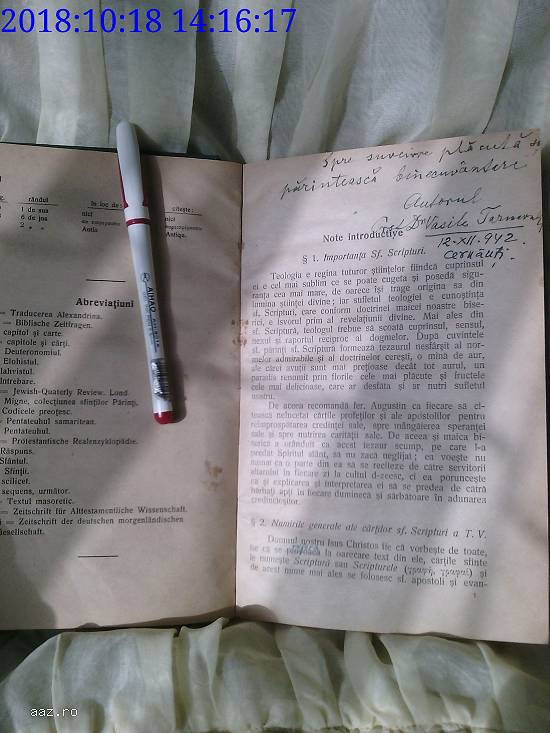 2018:10:18 14:16:17
rândul
în loc de :
citeşte :
1 de sus
nici
nici
6 de jos
2 „ „
Antia
Antiqa.
Abreviaţiuni
= Traducerea Alexandrina.
= Biblische Zeitfragen.
capitol şi carte.
capitole şi cărţi.
Deuteronomiul.
Elohistul.
Iahvistul.
Întrebare.
= Jewish-Quaterly Review. Lond.
Migne, colecţiunea sfinţilor Părinţi.
Codicele preoţesc.
= Pentateuhul samaritean.
Pentateuhul.
= Protestantische Realenzyklopädie.
Răspuns.
Sfântul.
Sfinţii.
scilicet.
sequens, următor.
Textul masoretic.
= Zeitschrift für Alttestamentliche Wissenschaft.
= Zeitschrift der deutschen morgenländischen
Gesellschaft.
AIHAO
Spre suvenire plăcută şi
părintească binecuvântare
Autorul
Dr Vasile
12-XII.942.
Cernăuţi.
Note introductive
§ 1. Importanţa Sf. Scripturi.
Teologia e regina tuturor ştiinţelor fiindcă cuprinsul
ei e cel mai sublim ce se poate cugeta şi posedă sigu-
ranţa cea mai mare, de oarece îşi trage origina sa din
lumina ştiinţii divine ; iar sufletul teologiei e cunoştinţa
sf. Scripturi, care conform doctrinei marcei noastre bise-
rici, e isvorul prim al revelaţiunii divine. Mai ales din
sf. Scriptură, teologul trebue să scoată cuprinsul, sensul,
nexul şi raportul reciproc al dogmelor. După cuvintele
sf. părinţi sf. Scriptură formează tezaurul nesfârşit al nor-
melor admirabile şi al doctrinelor cereşti, o mină de aur,
ale cărei avuţii sunt mai preţioase decât tot aurul, un
paradis renumit prin florile cele mai plăcute şi fructele
cele mai delicioase, care ar desfăta şi ar nutri sufletul
nostru.
De aceea recomandă fer. Augustin ca fiecare să ci-
tească neîncetat cărţile profeţilor şi ale apostolilor pentru
reîmprospătarea credinţei sale, spre mângăierea speranţei
sale şi spre nutrirea caritaţii sale. De aceea şi maica bi-
serică a orânduit ca acest tezaur scump, pe care l-a
predat Spiritul sfânt, să nu zacă neglijat ; ea voeşte nu
numai ca o parte din ea să se reciteze de către servitorii
altarului în fiecare zi la cultul d-zeesc, ci ea porunceşte
ca şi explicarea şi interpretarea ei să se predea de cătră
bărbaţi apţi în fiecare duminecă şi sărbătoare în adunarea
credincioşilor.
§ 2. Numirile generale ale cărţilor sf. Scripturi a T. V.
Domnul nostru Isus Christos fie că vorbeşte de toate,
fie că se provoacă la oarecare text din ele, cărţile sfinte
le numeşte Scriptură sau Scripturele (γραφή, γραφαί) şi
de acest nume mai ales se folosesc sf. apostoli şi evan-
1
aaz.ro